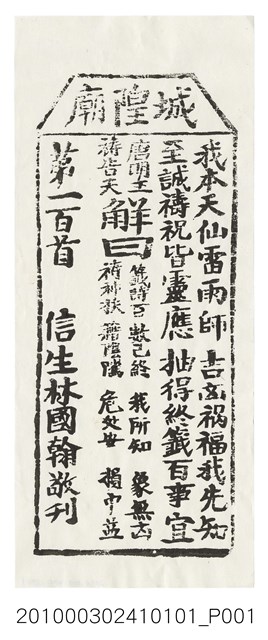 城隍廟
我本天仙雷雨師 吉凶禍福我先知
至誠禱祝皆靈應 抽得終籤百事宜
唐明王 籤詩百數已終 我所知 象無凶
禱告天 解曰 禱神扶 藉陰隲 危处安 損中益
第一百首 信生林國翰敬刊
201000302410101_P001